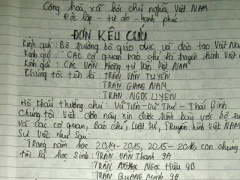 Cộng hoà xã hội chủ nghĩa Việt Nam
Độc lập - tự do - hạnh phúc
ĐƠN KÊU CỨU
Kính gửi: Bộ trưởng bộ giáo dục và đào tạo Việt Nam
Kính gửi: Các cơ quan báo chí truyền hình Việt Nam
Kính gửi: Các văn phòng luật sư Việt Nam
Chúng tôi tên là TRẦN VĂN TUYÊN
TRẦN GIANG NAM
TRẦN NGỌC LUYỆN
Hộ khẩu thường chú: Vũ Tiến - Vũ Thư - Thái Bình
Chúng tôi viết đơn này xin được trình bày với bộ
và các cơ quan, báo chí, luật sư, truyền hình Việt Nam
Sự việc như sau:
Trong năm học 2014-2015, 2015-2016 con chúng
tôi là học sinh: TRẦN VĂN THÀNH 9A
TRẦN NGỌC HIẾU 9B
TRẦN QUANG MINH 9B